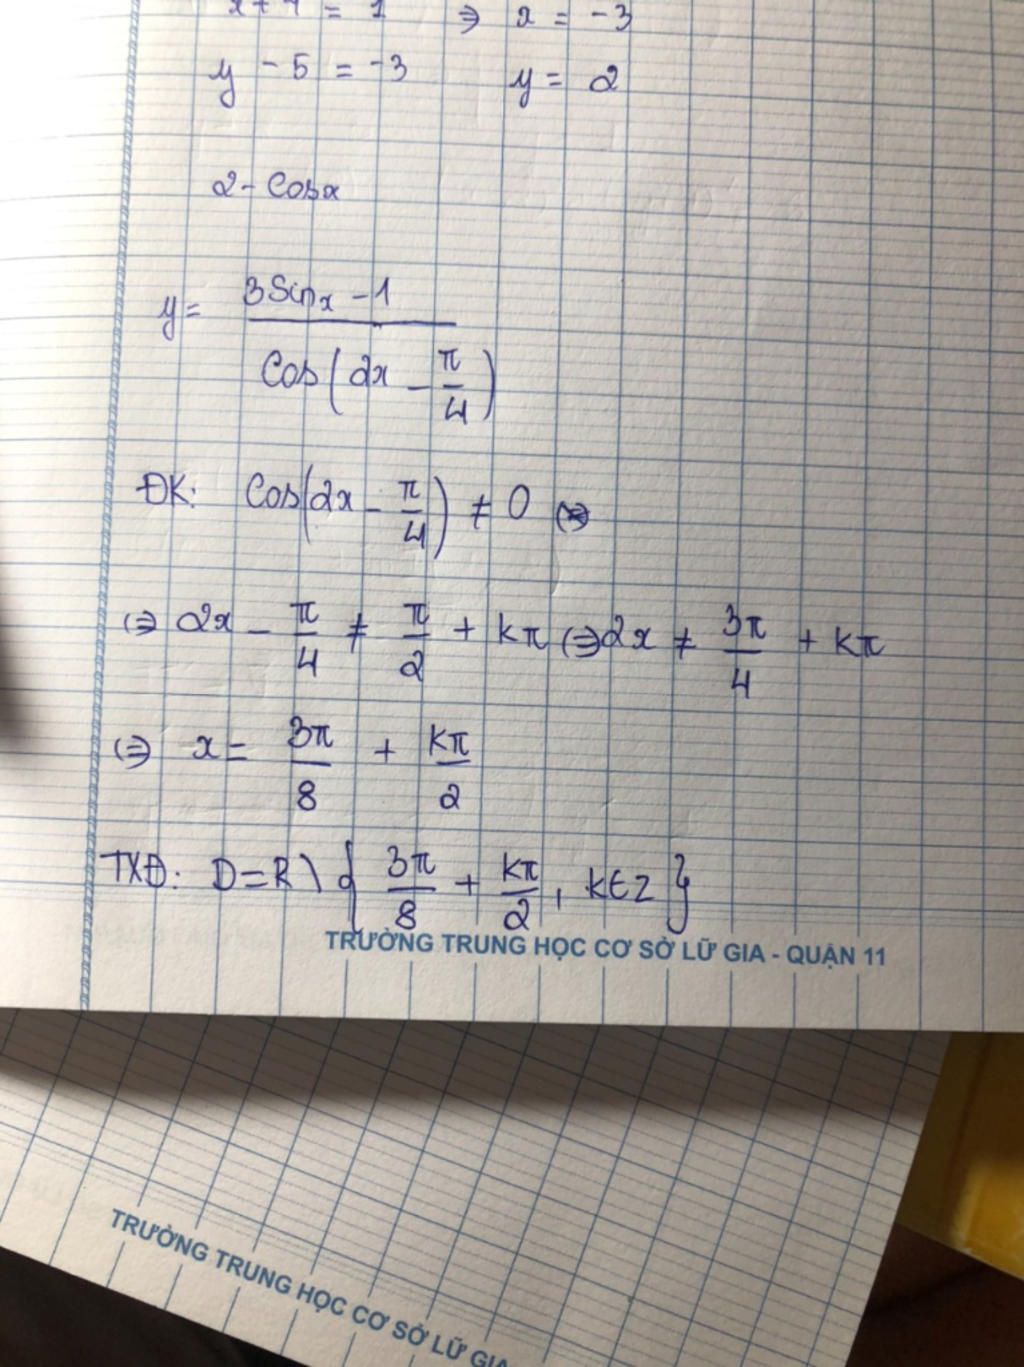 x + 4 = 1 ⇒ x = -3
y - 5 = -3 y = 2
2 - Cosx
y = \frac{3Sinx - 1}{Cos(2x - \frac{π}{4})}
ĐK: Cos(2x - \frac{π}{4}) ≠ 0 ⇔
⇔ 2x - \frac{π}{4} ≠ \frac{π}{2} + kπ ⇔ 2x ≠ \frac{3π}{4} + kπ
⇔ x = \frac{3π}{8} + \frac{kπ}{2}
TXĐ: D = R \ { \frac{3π}{8} + \frac{kπ}{2}, k ∈ Z }
TRƯỜNG TRUNG HỌC CƠ SỞ LỮ GIA - QUẬN 11
TRƯỜNG TRUNG HỌC CƠ SỞ LỮ GIA